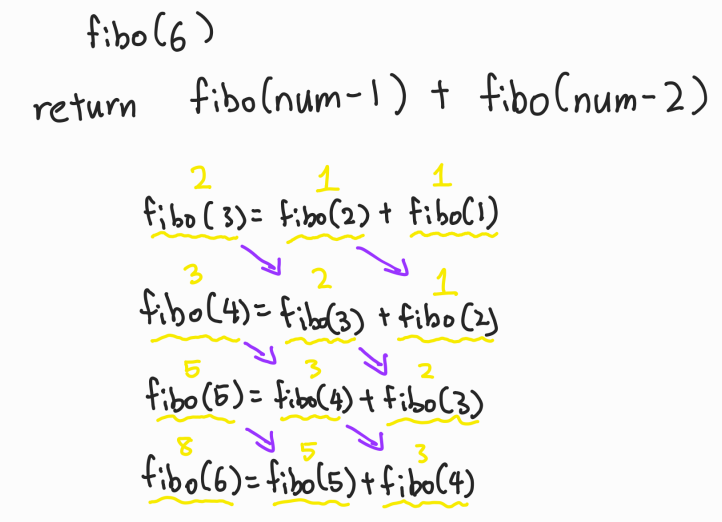 fibo(6)
return fibo(num-1) + fibo(num-2)
2 1 1
fibo(3)= fibo(2) + fibo(1)
3 2 1
fibo(4)= fibo(3) + fibo(2)
5 3 2
fibo(5)= fibo(4) + fibo(3)
8 5 3
fibo(6)= fibo(5) + fibo(4)